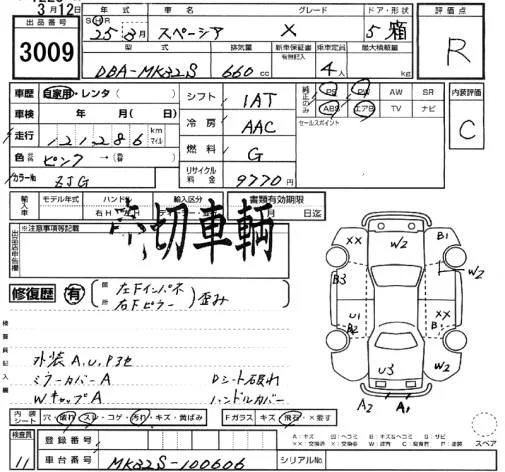 3月12日
出品番号
3009
年式 車名 グレード ドア・形状
SHR 25年3月 スペーシア X 5 箱
型式 排気量 新車保証書 有無記入 乗車定員 最大積載量
DBA-MK32S 660cc 4人 kg
評価点
R
車歴 自家用・レンタ( )
車検 年 月( 日)
走行 121,286 km マイル
色 ピンク →( )
カラーNo ZJG
シフト IAT
冷房 AAC
燃料 G
リサイクル料金 9770円
純正のみ PS PW AW SR
ABS エアB TV ナビ
セールスポイント
内装評価
C
輸入車 モデル年式 ハンドル 輸入区分
右H 左H ディーラー
書類有効期限
月 日迄
切車輌
出品店申告欄
※注意事項等記載
修復歴 有
箇所
左Fインパネ
右Fピラー
歪み
検査員記入欄
外装A,U,P3他
ミラーカバーA
WキャップA
Dシート破れ
ハンドルカバー
XX W2 B1
B3 W2
U1 B2 XX B
U3 W2
A2 A1
内装シート 穴・破れ・スレ・コゲ・汚れ・キズ・黄ばみ
Fガラス キズ・飛石・×要す
検査員
11
登録番号
車台番号 MK32S-100606 シリアルNo.
A:キズ
スペア